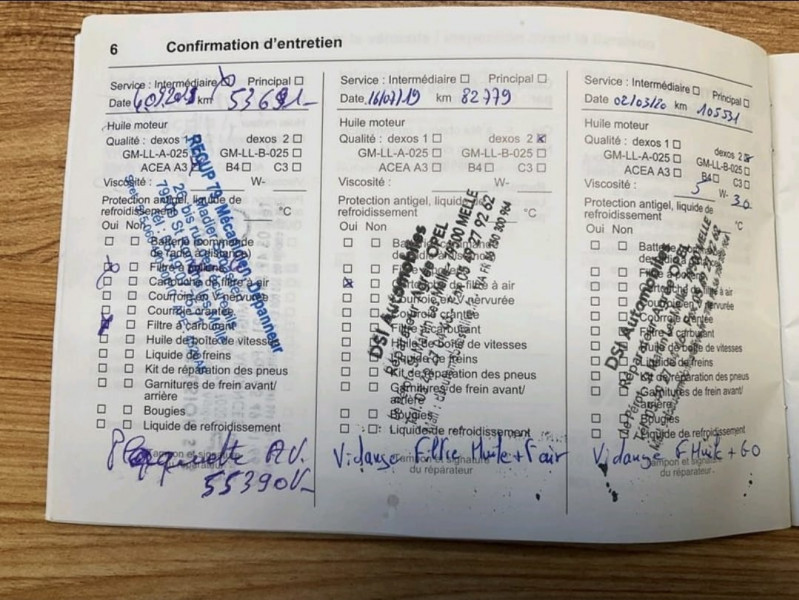 6 Confirmation d'entretien
Service : Intermédiaire Principal
Date km 53691
Huile moteur
Qualité : dexos 1 dexos 2
GM-LL-A-025 GM-LL-B-025
ACEA A3 B4 C3
Viscosité : W-
Protection antigel, liquide de
refroidissement °C
Oui Non
Batterie
Filtre à
Cartouche de filtre à air
Courroie nervurée
Courroie crantée
Filtre à carburant
Huile de boîte de vitesses
Liquide de freins
Kit de réparation des pneus
Garnitures de frein avant/
arrière
Bougies
Liquide de refroidissement
RECUP 79 Mécanicien Dépanneur
Plaquette AV.
55390
Service : Intermédiaire Principal
Date 16/07/19 km 82779
Huile moteur
Qualité : dexos 1 dexos 2
GM-LL-A-025 GM-LL-B-025
ACEA A3 B4 C3
Viscosité : W-
Protection antigel, liquide de
refroidissement °C
Oui Non
de filtre à air
Courroie en nervurée
Courroie crantée
carburant
Huile de boîte de vitesses
Liquide de freins
Kit de réparation des pneus
Garnitures de frein avant/
arrière
Bougies
Liquide de refroidissement
DSI Automobiles
Réparateur Agréé OPEL
79500 MELLE
05 49 27 92 62
Vidange Filtre Huile + F air
Tampon et signature
du réparateur
Service : Intermédiaire Principal
Date 02/03/20 km 105531
Huile moteur
Qualité : dexos 1 dexos 2
GM-LL-A-025 GM-LL-B-025
ACEA A3 B4 C3
Viscosité : 5 W- 30
Protection antigel, liquide de
refroidissement °C
Oui Non
de filtre à air
Courroie en V nervurée
Courroie crantée
Filtre à carburant
Huile de boîte de vitesses
Liquide de freins
Kit de réparation des pneus
Garnitures de frein avant/
arrière
Bougies
Liquide de refroidissement
DSI Automobiles
Réparateur Agréé OPEL
Vidange F Huile + GO
Tampon et signature
du réparateur